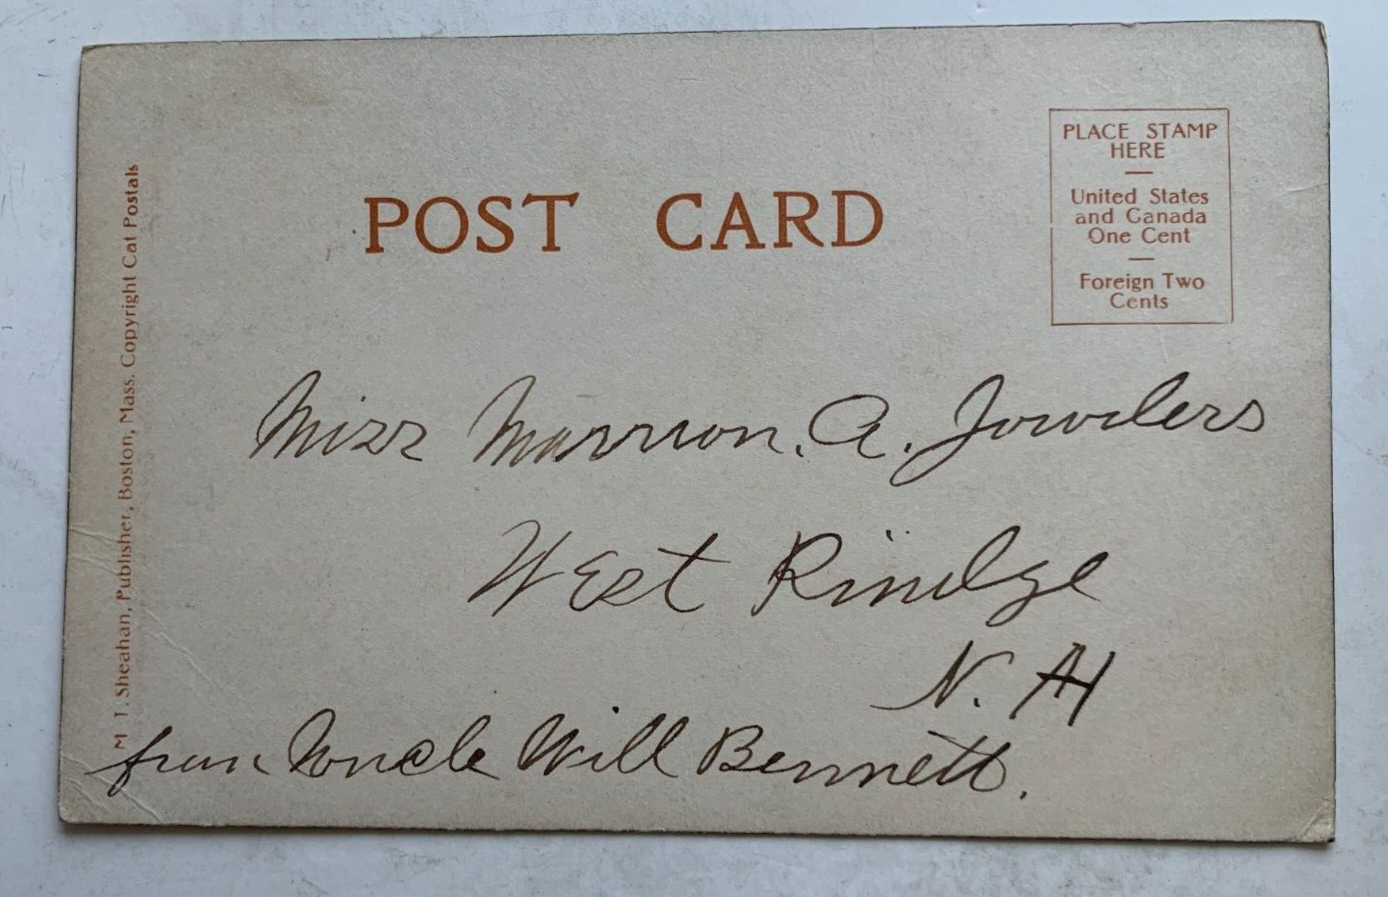 POST CARD
PLACE STAMP
HERE
United States
and Canada
One Cent
Foreign Two
Cents
M. T. Sheahan, Publisher, Boston, Mass. Copyright Cat Postals
Miss Marrion. A.
West Rindge
N. H
from Uncle Will Bennett.